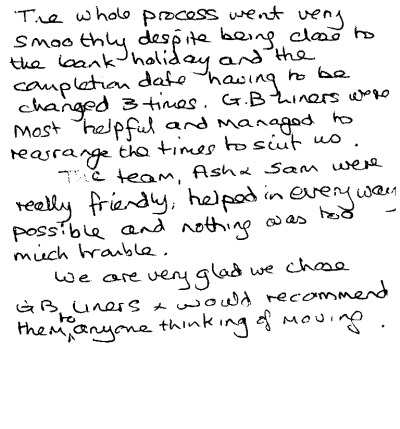 The whole process went very
smoothly despite being close to
the bank holiday and the
completion date having to be
changed 3 times. G.B Liners were
most helpful and managed to
rearrange the times to suit us.
The team, Ash & Sam were
really friendly, helped in every way
possible and nothing was too
much trouble.
We are very glad we chose
GB Liners & would recommend
them to anyone thinking of moving.